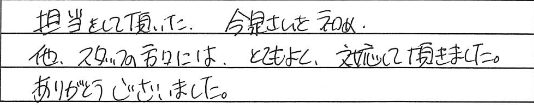 担当をして頂いた. 今泉さんを初め.
他、スタッフの方々には、とてもよく、対応して頂きました。
ありがとうございました。